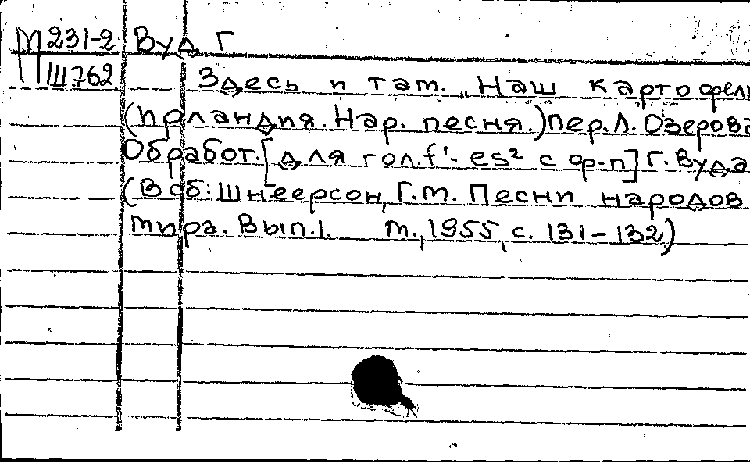 М 231-2 Вуд Г
Ш762 Здесь и там. „Наш картофель
(Ирландия. Нар. песня.) Пер. Л. Озерова
Обработ. [для гол. f¹ - es² с ф-п] Г. Вуда
(В сб: Шнеерсон, Г.М. Песни народов
мира. Вып. 1. М., 1955, с. 131-132)